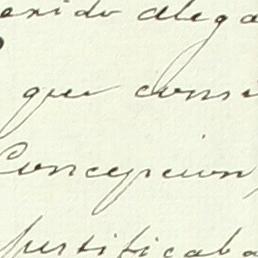 erido alega
que consi
Concepcion,
justificaba